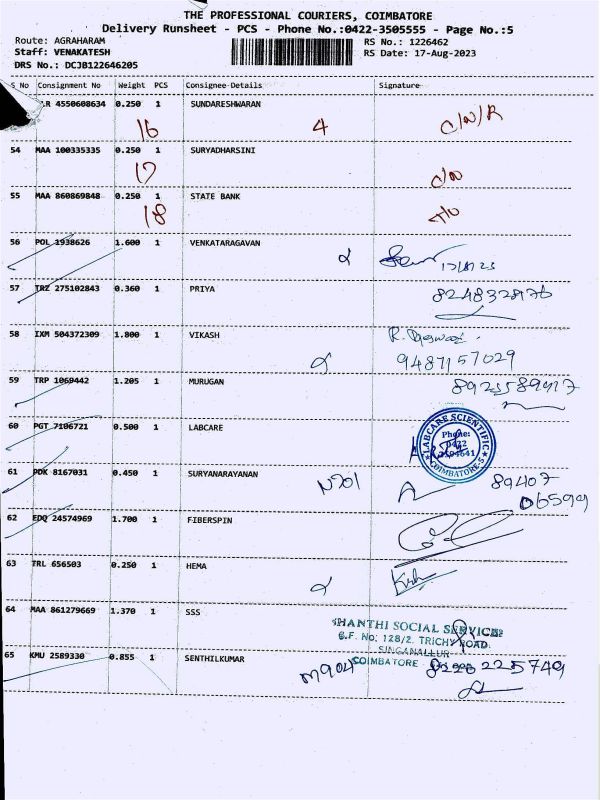 THE PROFESSIONAL COURIERS, COIMBATORE
Delivery Runsheet - PCS - Phone No.:0422-3505555 - Page No.:5
Route: AGRAHARAM RS No.: 1226462
Staff: VENAKATESH RS Date: 17-Aug-2023
DRS No.: DCJB122646205
S No Consignment No Weight PCS Consignee Details Signature
4550608634 0.250 1 SUNDARESHWARAN
16 4 C/N/R
54 MAA 100335335 0.250 1 SURYADHARSINI
17 C/N
55 MAA 860869848 0.250 1 STATE BANK
18
56 POL 1938626 1.600 1 VENKATARAGAVAN
17/8/23
57 TRZ 275102843 0.360 1 PRIYA
8248328176
58 IXM 504372309 1.800 1 VIKASH
9487157029
59 TRP 1069442 1.205 1 MURUGAN
60 PGT 7106721 0.500 1 LABCARE
LABCARE SCIENTIFIC
Phone:
0422
COIMBATORE-5
61 PDK 8167031 0.450 1 SURYANARAYANAN
N201 89407
06599
62 EDQ 24574969 1.700 1 FIBERSPIN
63 TRL 656503 0.250 1 HEMA
64 MAA 861279669 1.370 1 SSS
SHANTHI SOCIAL SERVICE
S.F. No: 128/2. TRICHY ROAD.
SINGANALLUR
COIMBATORE
65 KMU 2589330 0.855 1 SENTHILKUMAR
M904 8220 225749